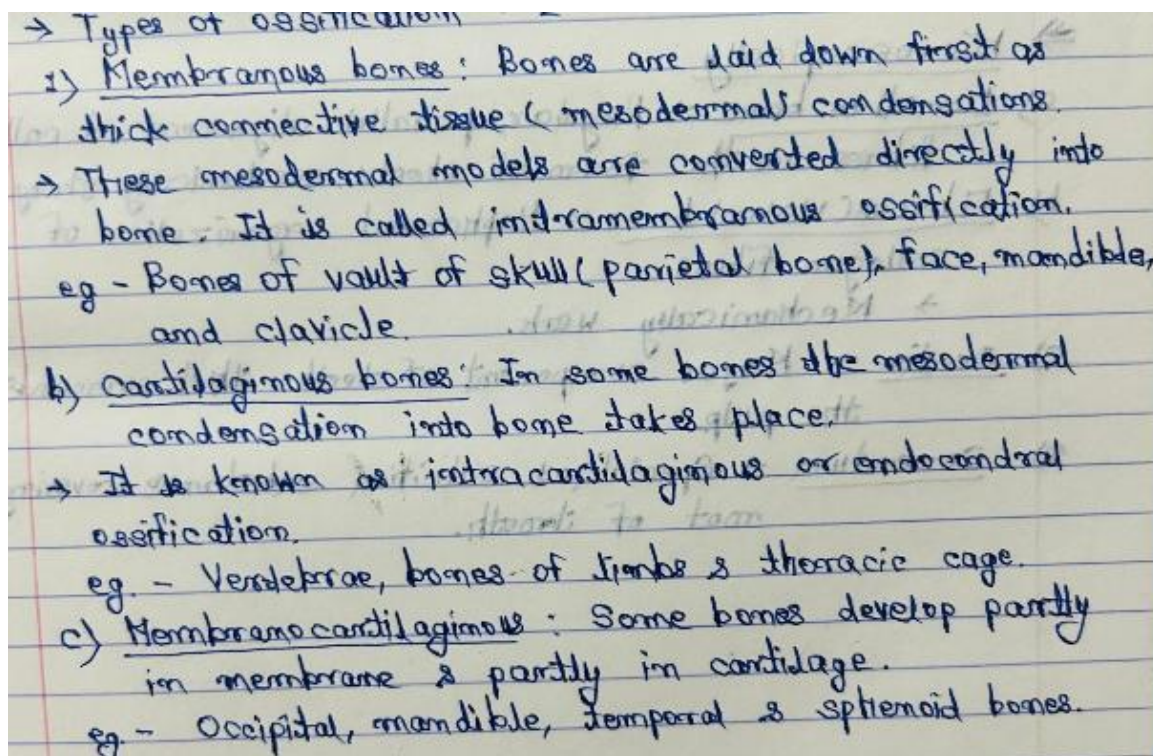 → Types of ossification
1) Membranous bones : Bones are laid down first as
thick connective tissue (mesodermal) condensations.
→ These mesodermal models are converted directly into
bone. It is called intramembranous ossification.
eg - Bones of vault of skull (parietal bone), face, mandible,
and clavicle.
b) Cartilaginous bones : In some bones the mesodermal
condensation into bone takes place.
→ It is known as intracartilaginous or endocondral
ossification.
eg. - Vertebrae, bones of limbs & thoracic cage.
c) Membranocartilaginous : Some bones develop partly
in membrane & partly in cartilage.
eg. - Occipital, mandible, temporal & sphenoid bones.